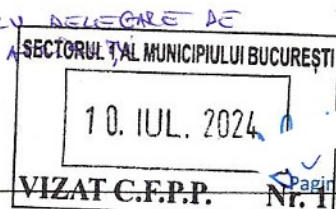 DELEGARE DE
SECTORUL 7 AL MUNICIPIULUI BUCUREȘTI
10. IUL. 2024
Pagin
VIZAT C.F.P.P. Nr. 1